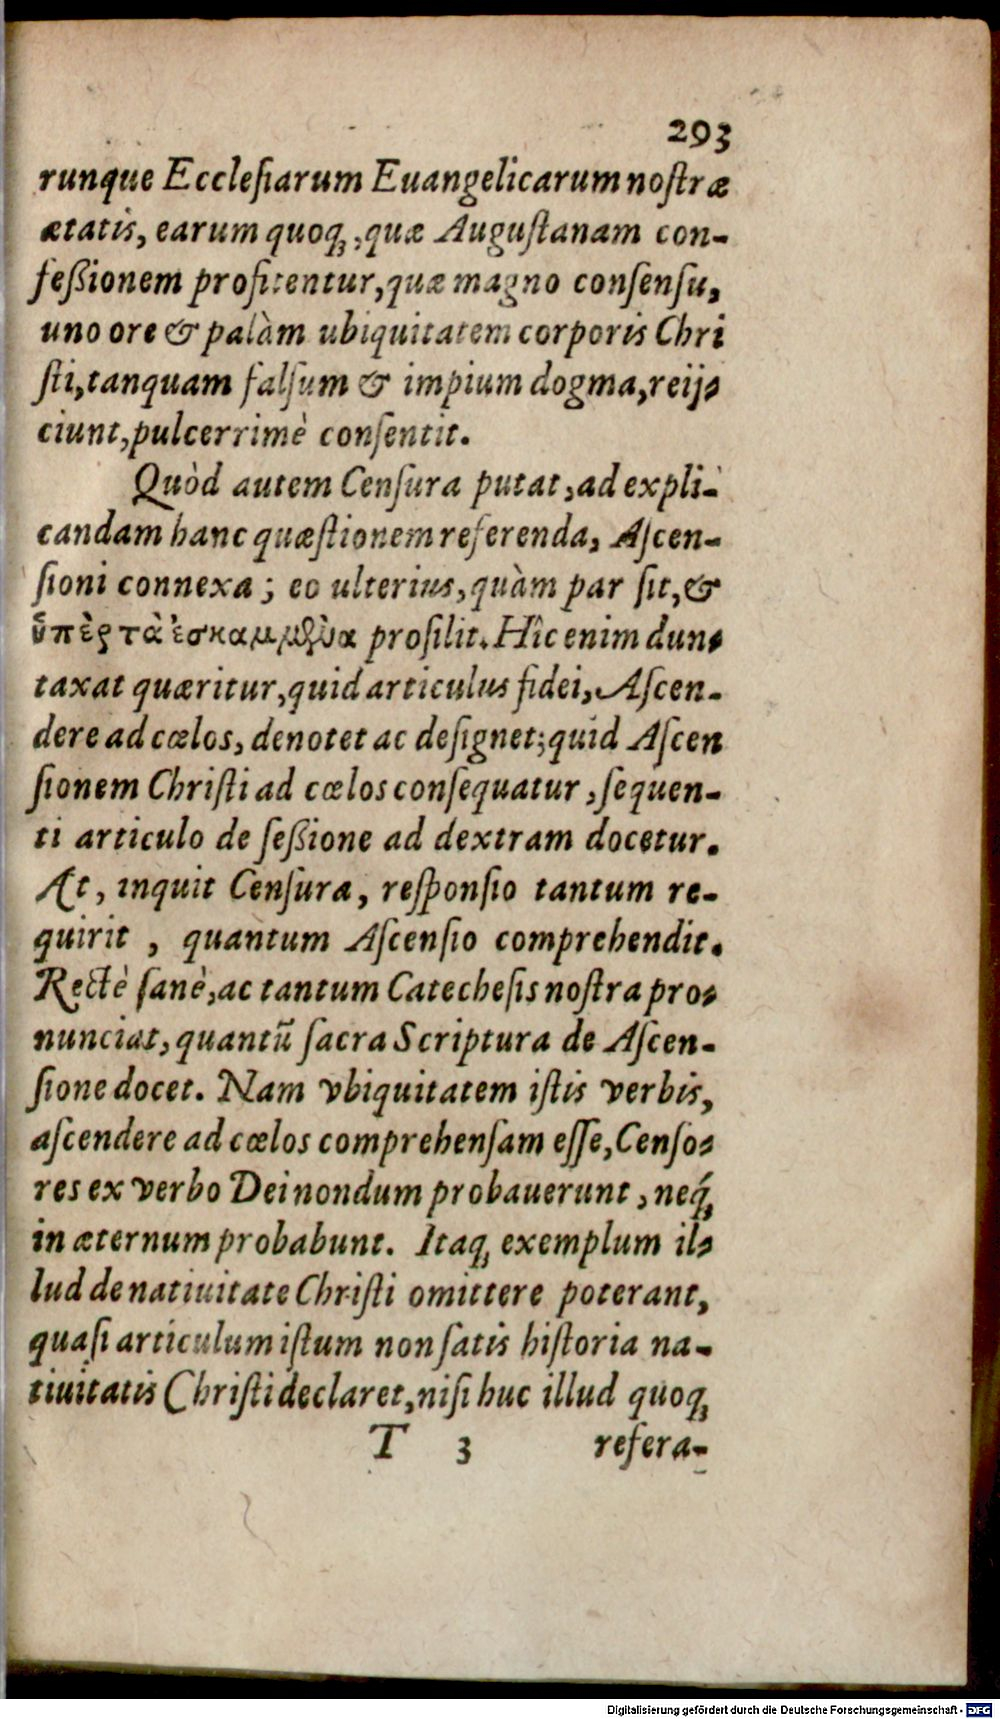 293
runque Eccleſiarum Euangelicarum noſtræ
ætatis, earum quoq́;, quæ Auguſtanam con-
feßionem profitentur, quæ magno conſenſu,
uno ore & palàm ubiquitatem corporis Chri
ſti, tanquam falſum & impium dogma, reij-
ciunt, pulcerrimè conſentit.
Quòd autem Cenſura putat, ad expli-
candam hanc quæſtionem referenda, Aſcen-
ſioni connexa; eo ulterius, quàm par ſit, &
ὑπὲρ τὰ ἐσκαμμένα proſilit. Hîc enim dun-
taxat quæritur, quid articulus fidei, Aſcen-
dere ad cœlos, denotet ac deſignet; quid Aſcen
ſionem Chriſti ad cœlos conſequatur, ſequen-
ti articulo de ſeßione ad dextram docetur.
At, inquit Cenſura, reſponſio tantum re-
quirit, quantum Aſcenſio comprehendit.
Rectè ſanè, ac tantum Catecheſis noſtra pro-
nunciat, quantũ ſacra Scriptura de Aſcen-
ſione docet. Nam vbiquitatem iſtis verbis,
aſcendere ad cœlos comprehenſam eſſe, Cenſo-
res ex verbo Dei nondum probauerunt, neq́;
in æternum probabunt. Itaq; exemplum il-
lud de natiuitate Chriſti omittere poterant,
quaſi articulum iſtum non ſatis hiſtoria na-
tiuitatis Chriſti declaret, niſi huc illud quoq;
T 3 refera-
Digitalisierung gefördert durch die Deutsche Forschungsgemeinschaft - DFG